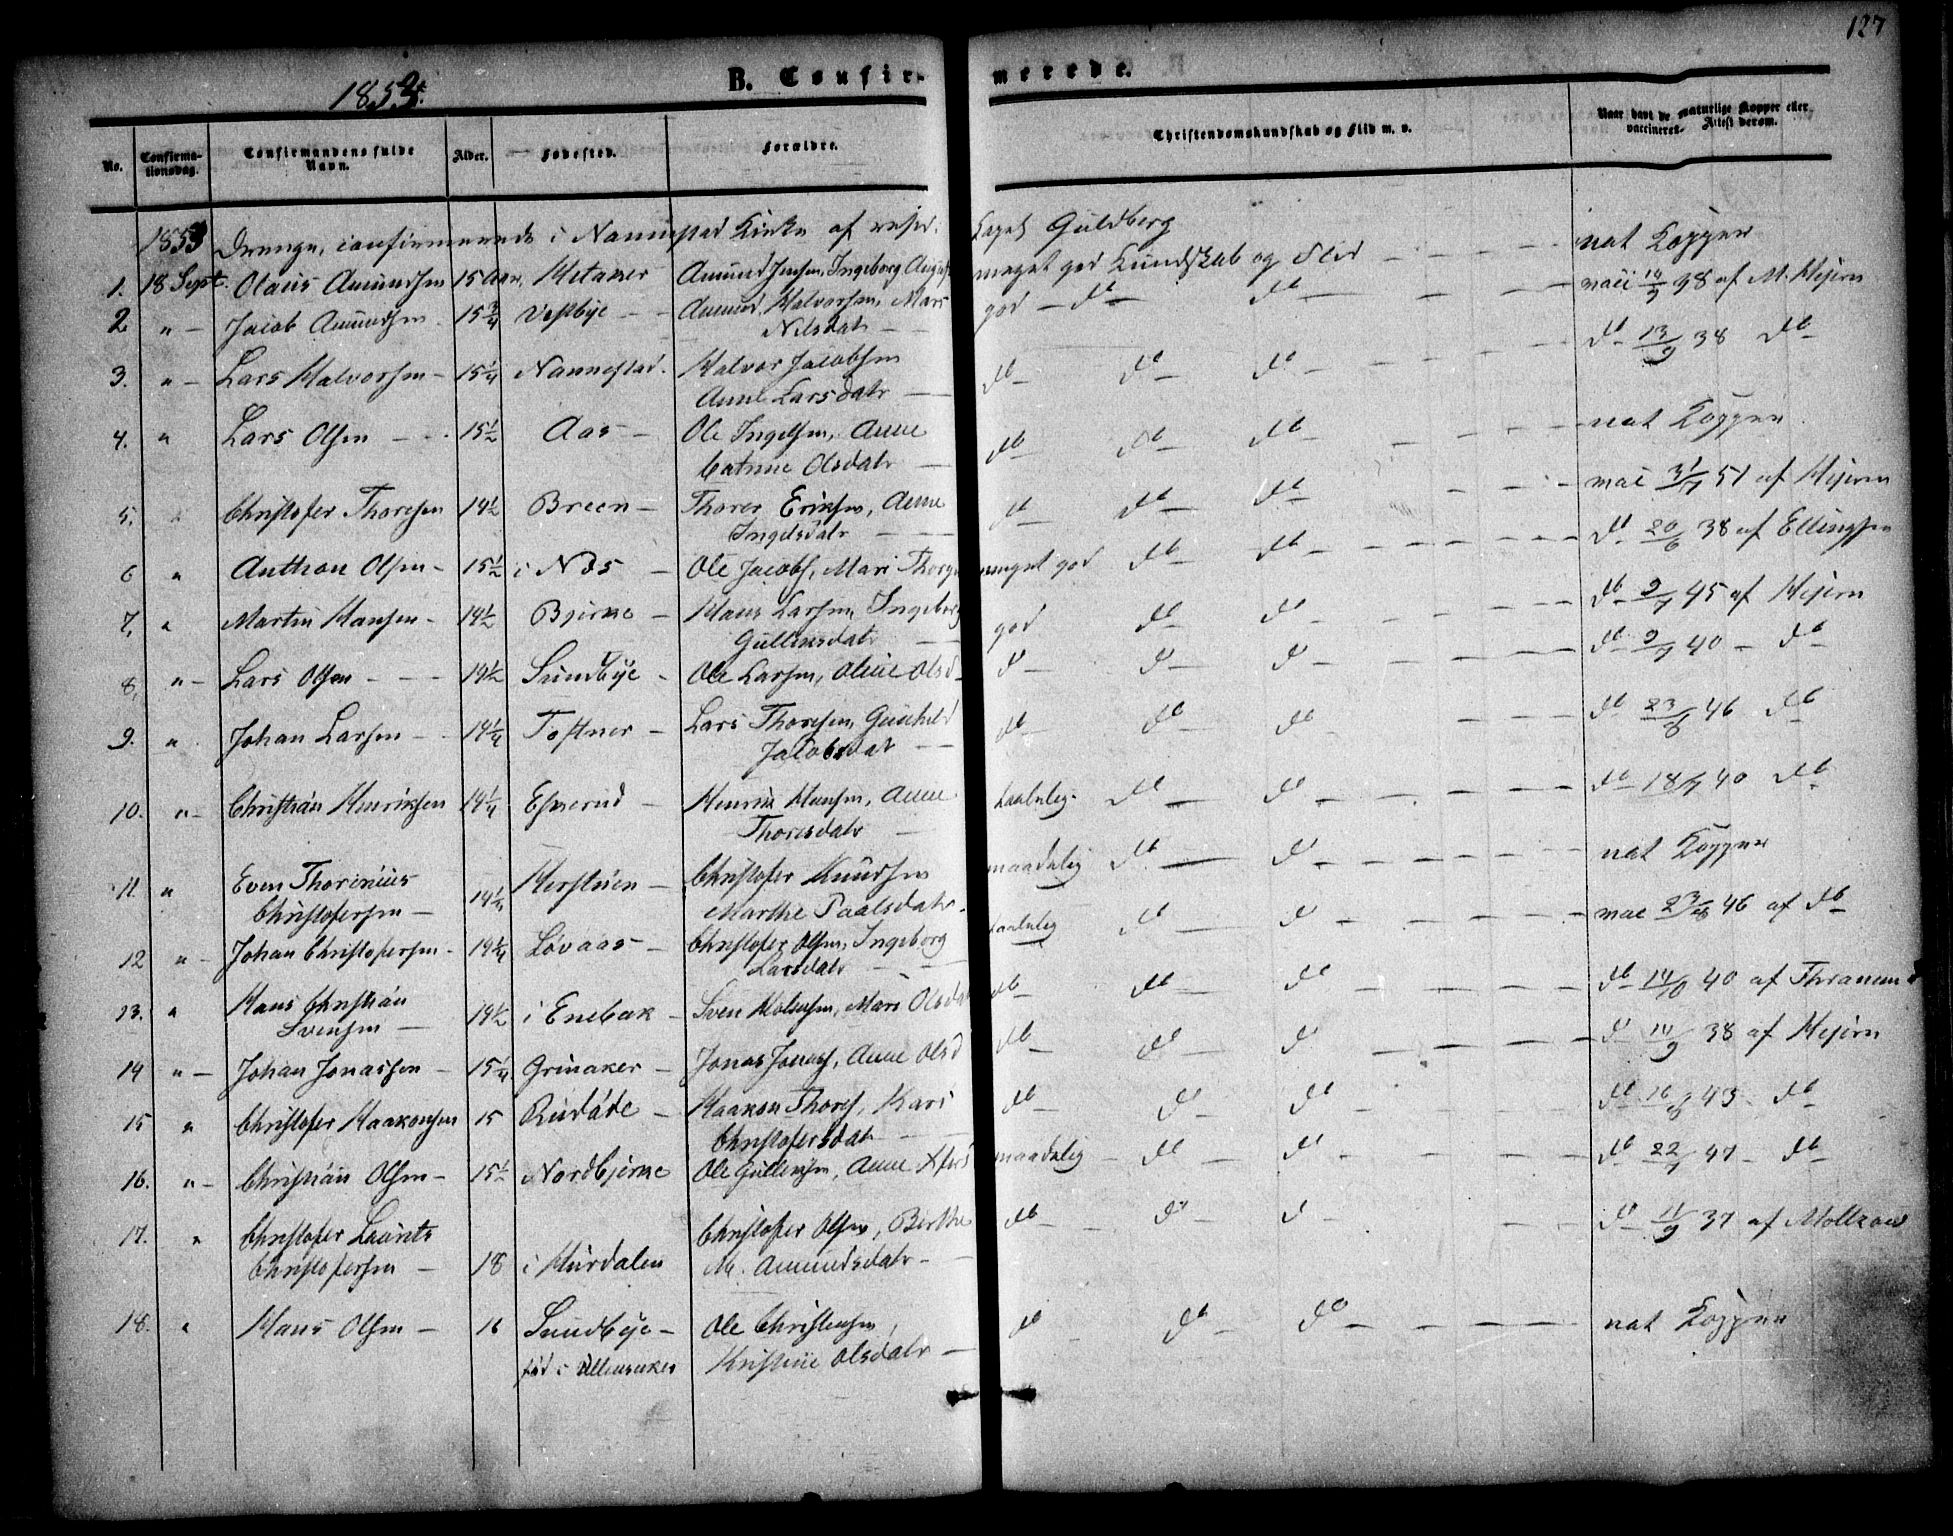 127
1853.
B. Confirmerede.
No. Confirmationsdag. Confirmandens fulde Navn. Alder. Fødested. Forældre. Christendomskundskab og Flid m. v. Naar havt de naturlige Kopper eller vaccineret. Attest derom.
1853 Drenge, confirmerede i Nannestad Kirke af resid. Capel. Guldberg
1. 18 Sept. Olaus Amundsen 15 Aar, Amund Jensen, Ingeborg meget god Kundskab og Flid nat Kopper
2 " Jacob Amundsen 15 3/4 Vestbye Amund Halvorsen, Mari Nilsdatr god do do vacc 38 af M. Hejern
3. " Lars Halvorsen 15 1/4 Nannestad. Halvor Jacobsen Anne Larsdatr do do do do 13/9 38 do
4. " Lars Olsen 15 1/2 Aas Ole Ingelsen, Anne Catrine Olsdatr do do do nat Kopper
5. " Christofer Thoresen 14 1/2 Breen Thorer Eriksen, Anne Ingelsdatr do do do vac 31/7 51 af Hejern
6 " Anthon Olsen 15 1/2 i Næs Ole Jacobs, Mari meget god do do do 20/6 38 af Ellingsen
7. " Martin Hansen 14 1/2 Bjerke Hans Larsen, Ingeborg Gulliksdatr god do do do 9/7 45 af Hejern
8. " Lars Olsen 14 1/2 Sundbye Ole Larsen, Oline Olsd do do do do 9/7 40 do
9. " Johan Larsen 14 1/4 Toftner Lars Thoresen, Gunhild Jacobsdat do do do do 23/8 46 do
10. " Christian Henriksen 14 1/4 Henrik Hansen, Anne Thoresdatr taalelig do do do 18/7 40 do
11. " Even Thorinius Christofersen 14 1/4 Christofer Knudsen Marthe Paalsdatr maadelig do do nat Kopper
12 " Johan Christofersen 14 1/4 Løvaas Christofer Olsen, Ingeborg Larsdatr taalelig do do vac 23/8 46 af do
13. " Hans Christian Svensen 14 1/2 i Enebak Sven Mari Olsdat do do do do 40 af
14 " Johan Jonassen 15 1/4 Grinaker Jonas Jonass, Anne Olsd do do do do 38 af Hejern
15 " Christofer Haakonsen 15 Haakon Thores, Kari Christofersdatr do do do do 16/8 43 do
16. " Christian Olsen 15 1/2 Nordbjerke Ole Gulliksen, Anne Xfers maadelig do do do 22/7 47 do
17. " Christofer Laurits Christofersen 18 i Hurdalen Christofer Olsen, Birthe M. Amundsdatr do do do do 11/9 37 af
18. " Hans Olsen 16 Sundbye Ole Christensen, do do do nat Kopper
fød i Ullensaker Kristine Olsdatr